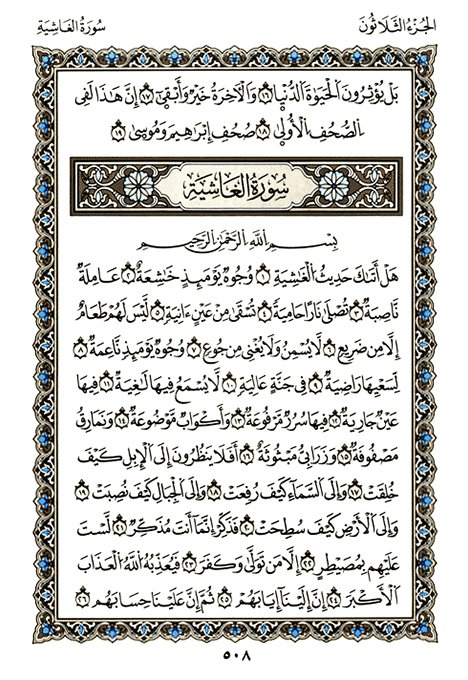 الجزء الثلاثون
سورة الغاشية
بَلْ تُؤْثِرُونَ الْحَيَوٰةَ الدُّنْيَا ١٦ وَالْآخِرَةُ خَيْرٌ وَأَبْقَىٰ ١٧ إِنَّ هَٰذَا لَفِي
الصُّحُفِ الْأُولَىٰ ١٨ صُحُفِ إِبْرَاهِيمَ وَمُوسَىٰ ١٩
سُورَةُ الغَاشِيَة
بِسْمِ اللَّهِ الرَّحْمَٰنِ الرَّحِيمِ
هَلْ أَتَىٰكَ حَدِيثُ الْغَٰشِيَةِ ١ وُجُوهٌ يَوْمَئِذٍ خَٰشِعَةٌ ٢ عَامِلَةٌ
نَّاصِبَةٌ ٣ تَصْلَىٰ نَارًا حَامِيَةً ٤ تُسْقَىٰ مِنْ عَيْنٍ ءَانِيَةٍ ٥ لَّيْسَ لَهُمْ طَعَامٌ
إِلَّا مِن ضَرِيعٍ ٦ لَّا يُسْمِنُ وَلَا يُغْنِي مِن جُوعٍ ٧ وُجُوهٌ يَوْمَئِذٍ نَّاعِمَةٌ ٨
لِّسَعْيِهَا رَاضِيَةٌ ٩ فِي جَنَّةٍ عَالِيَةٍ ١٠ لَّا تَسْمَعُ فِيهَا لَٰغِيَةً ١١ فِيهَا
عَيْنٌ جَارِيَةٌ ١٢ فِيهَا سُرُرٌ مَّرْفُوعَةٌ ١٣ وَأَكْوَابٌ مَّوْضُوعَةٌ ١٤ وَنَمَارِقُ
مَصْفُوفَةٌ ١٥ وَزَرَابِيُّ مَبْثُوثَةٌ ١٦ أَفَلَا يَنظُرُونَ إِلَى الْإِبِلِ كَيْفَ
خُلِقَتْ ١٧ وَإِلَى السَّمَاءِ كَيْفَ رُفِعَتْ ١٨ وَإِلَى الْجِبَالِ كَيْفَ نُصِبَتْ ١٩
وَإِلَى الْأَرْضِ كَيْفَ سُطِحَتْ ٢٠ فَذَكِّرْ إِنَّمَا أَنتَ مُذَكِّرٌ ٢١ لَّسْتَ
عَلَيْهِم بِمُصَيْطِرٍ ٢٢ إِلَّا مَن تَوَلَّىٰ وَكَفَرَ ٢٣ فَيُعَذِّبُهُ اللَّهُ الْعَذَابَ
الْأَكْبَرَ ٢٤ إِنَّ إِلَيْنَا إِيَابَهُمْ ٢٥ ثُمَّ إِنَّ عَلَيْنَا حِسَابَهُم ٢٦
٥٠٨